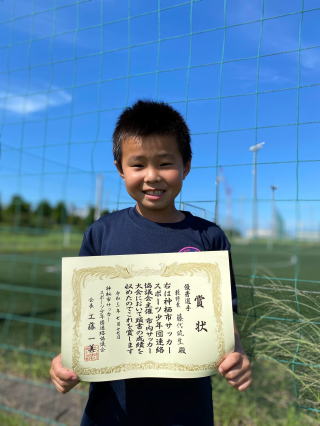 賞状
優秀選手
藤代琉生殿
右は神栖市サッカー
スポーツ少年団連絡
協議会主催 市内サッカー
大会において頭書の成績を
収めたのでこれを賞します
令和三年七月二十七日
神栖市サッカー
スポーツ少年団連絡協議会
会長 工藤一美